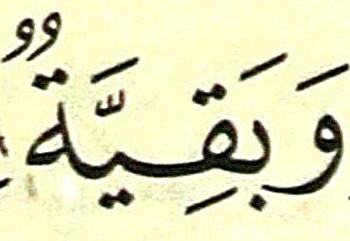 وَبَقِيَّةٌ